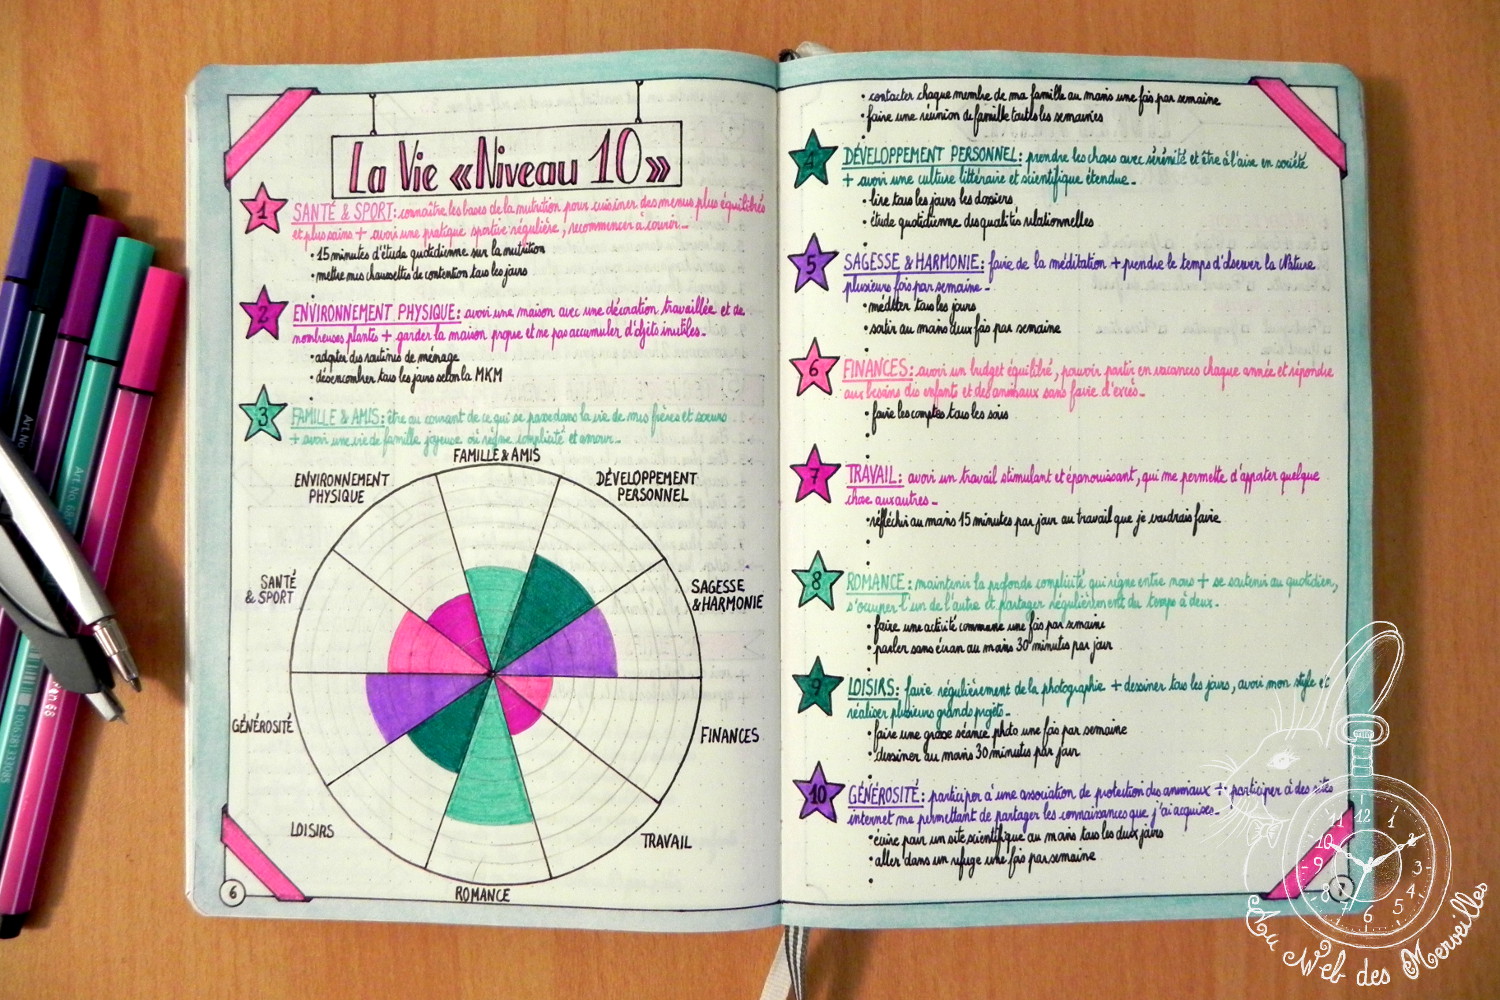 La Vie «Niveau 10»
1 SANTÉ & SPORT: connaître les bases de la nutrition pour cuisiner des menus plus équilibrés
et plus sains + avoir une pratique sportive régulière, recommencer à courir...
• 15 minutes d'étude quotidienne sur la nutrition
• mettre mes chaussettes de contention tous les jours
•
2 ENVIRONNEMENT PHYSIQUE: avoir une maison avec une décoration travaillée et de
nombreuses plantes + garder la maison propre et ne pas accumuler d'objets inutiles...
• adopter des routines de ménage
• désencombrer tous les jours selon la MKM
•
3 FAMILLE & AMIS: être au courant de ce qui se passe dans la vie de mes frères et soeurs
+ avoir une vie de famille joyeuse où règne complicité et amour...
FAMILLE & AMIS
ENVIRONNEMENT
PHYSIQUE
DÉVELOPPEMENT
PERSONNEL
SANTÉ
& SPORT
SAGESSE
& HARMONIE
GÉNÉROSITÉ
FINANCES
LOISIRS
TRAVAIL
ROMANCE
6
• contacter chaque membre de ma famille au moins une fois par semaine
• faire une réunion de famille toutes les semaines
•
4 DÉVELOPPEMENT PERSONNEL: prendre les choses avec sérénité et être à l'aise en société
+ avoir une culture littéraire et scientifique étendue...
• lire tous les jours les dossiers
• étude quotidienne des qualités relationnelles
•
5 SAGESSE & HARMONIE: faire de la méditation + prendre le temps d'observer la Nature
plusieurs fois par semaine...
• méditer tous les jours
• sortir au moins deux fois par semaine
•
6 FINANCES: avoir un budget équilibré, pouvoir partir en vacances chaque année et répondre
aux besoins des enfants et des animaux sans faire d'excès...
• faire les comptes tous les soirs
•
7 TRAVAIL: avoir un travail stimulant et épanouissant, qui me permette d'apporter quelque
chose aux autres...
• réfléchir au moins 15 minutes par jour au travail que je voudrais faire
•
8 ROMANCE: maintenir la profonde complicité qui règne entre nous + se soutenir au quotidien,
s'occuper l'un de l'autre et partager régulièrement du temps à deux...
• faire une activité commune une fois par semaine
• parler sans écran au moins 30 minutes par jour
•
9 LOISIRS: faire régulièrement de la photographie + dessiner tous les jours, avoir mon style et
réaliser plusieurs grands projets...
• faire une grosse séance photo une fois par semaine
• dessiner au moins 30 minutes par jour
•
10 GÉNÉROSITÉ: participer à une association de protection des animaux + participer à des sites
internet me permettant de partager les connaissances que j'ai acquises...
• écrire pour un site scientifique au moins tous les deux jours
• aller dans un refuge une fois par semaine
•
12 1 2 3 4 5 6 7 8 9 10 11
Au Web des Merveilles